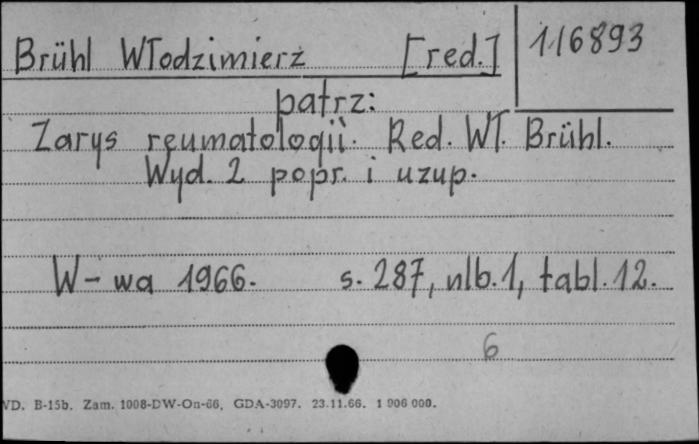 Brühl Włodzimierz [red.] 116893
patrz:
Zarys reumatologii. Red. Wł. Brühl.
Wyd. 2 popr. i uzup.
W-wa 1966. s. 287, nlb. 1, tabl. 12.
6
VD. B-15b. Zam. 1008-DW-On-66, GDA-3097. 23.11.66. 1 906 000.